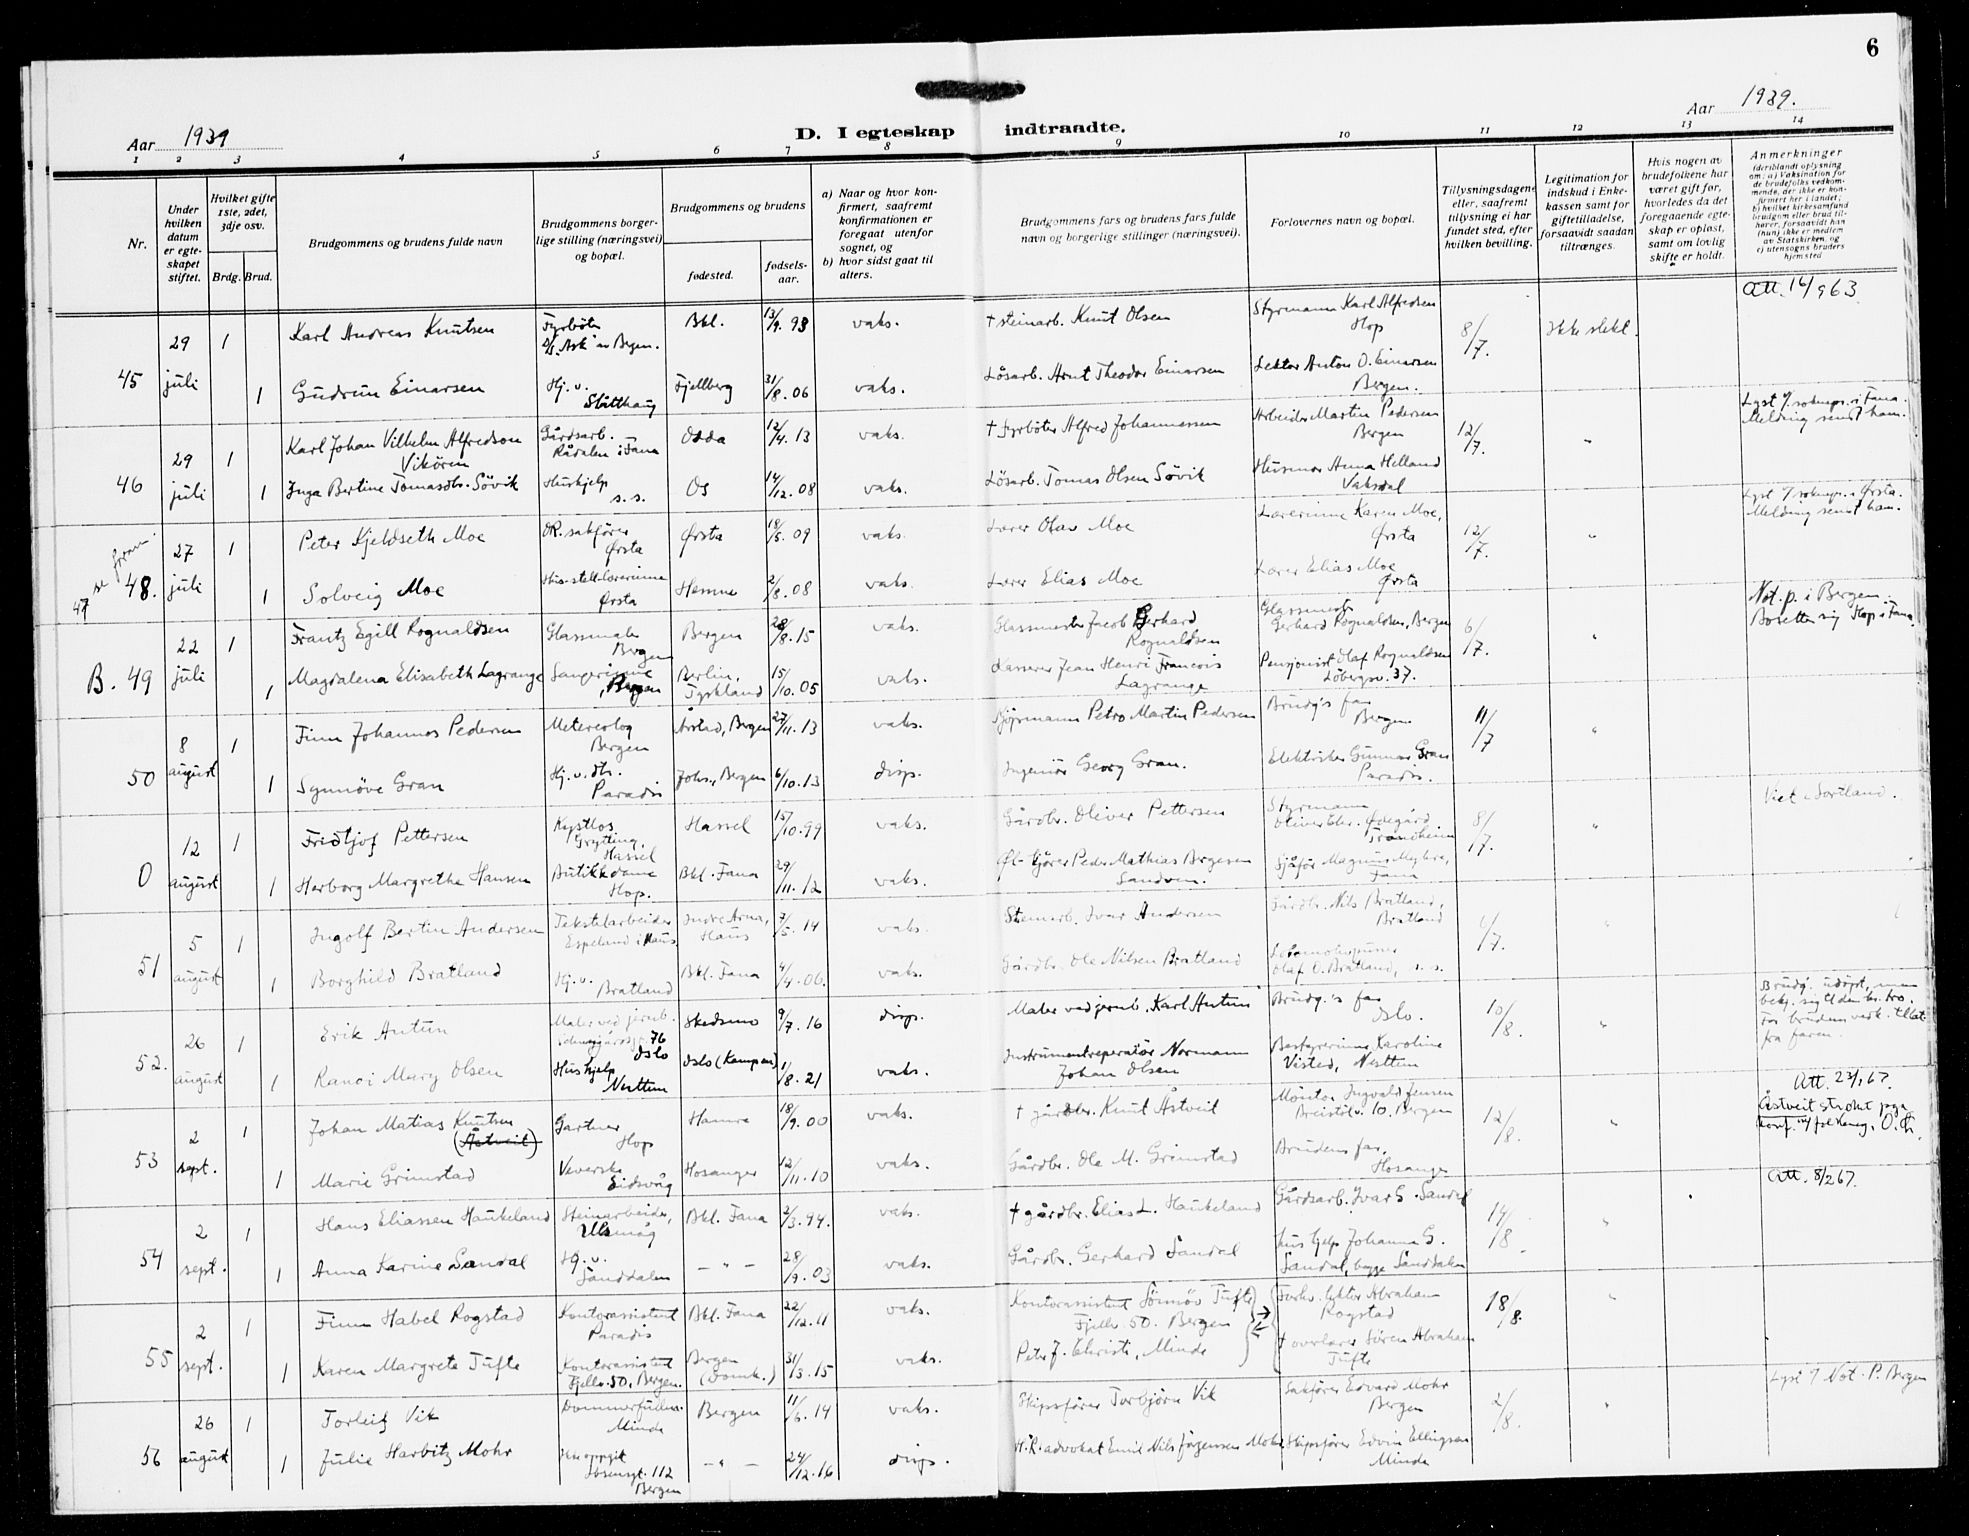 6
Aar 1939
D. I egteskap indtraadte.
Aar 1939.
1 2 3 4 5 6 7 8 9 10 11 12 13 14
Nr.
Under hvilken datum er egteskapet stiftet.
Hvilket gifte 1ste, 2det, 3dje osv.
Brdg. Brud.
Brudgommens og brudens fulde navn
Brudgommens borgerlige stilling (næringsvei) og bopæl.
Brudgommens og brudens
fødested.
fødselsaar.
a) Naar og hvor konfirmert, saafremt konfirmationen er foregaat utenfor sognet, og
b) hvor sidst gaat til alters.
Brudgommens fars og brudens fars fulde navn og borgerlige stillinger (næringsvei).
Forlovernes navn og bopæl.
Tillysningsdagene eller, saafremt tillysning ei har fundet sted, efter hvilken bevilling.
Legitimation for indskud i Enkekassen samt for giftetilladelse, forsaavidt saadan tiltrænges.
Hvis nogen av brudefolkene har været gift før, hvorledes da det foregaaende egteskap er opløst, samt om lovlig skifte er holdt.
Anmerkninger
(deriblandt oplysning om: a) Vaksination for de brudefolks vedkommende, der ikke er konfirmert her i landet; b) hvilket kirkesamfund brudgom eller brud tilhører, forsaavidt han (hun) ikke er medlem av Statskirken, og c) utensogns bruders hjemsted
45 29 juli 1 Karl Andreas Knutsen Fyrbøter D/S. "Ask" av Bergen. Bkl. 13/9. 93 vaks. † steinarb. Knut Olsen Styrmann Karl Alfredsen Hop 8/7. Ikke slekt. Att. 16/9 63
1 Gudrun Einarsen Hj. v. Slåtthaug Fjellberg 31/8. 06 vaks. Løsarb. Arnt Theodor Einarsen Lektor Anton O. Einarsen Bergen.
46 29 juli 1 Karl Johan Vilhelm Alfredson Vikøren Gårdsarb. Rådalen i Fana Odda 12/4. 13 vaks. † Fyrbøter Alfred Johannessen Arbeider Martin Pedersen Bergen 12/7. " Lyst f sokmpr. i Fana. Melding sendt ham.
1 Inga Bertine Tomasdtr. Søvik Huskjelp s. s. Os 14/12. 08 vaks. Løsarb. Tomas Olsen Søvik Husmor Anna Helland Vaksdal
47 se foran
48. 27 juli 1 Peter Kjeldseth Moe OR. sakfører Ørsta Ørsta 18/5. 09 vaks. Lærer Olav Moe Lærerinne Karen Moe, Ørsta 12/7. " Lyst f sokmpr. i Ørsta. Melding sendt ham.
1 Solveig Moe Hus-stell-lærerinne Ørsta Hemne 2/8. 08 vaks. Lærer Elias Moe Lærer Elias Moe Ørsta
B. 49 22 juli 1 Frantz Egill Rognaldsen Glassmaler Bergen Bergen 28/8. 15 vaks. Glassmester Jacob Gerhard Rognaldsen Glassmester Gerhard Rognaldsen, Bergen 6/7. " Not. p. i Bergen. Bosetter sig Hop i Fana
1 Magdalena Elisabeth Lagrange Sangerinne, Bergen Berlin, Tyskland 15/10. 05 vaks. Kasserer Jean Henri Francois Lagrange Pensjonist Olaf Rognaldsen Løbergsv. 37.
50 8 august 1 Finn Johannes Pedersen Metereolog Bergen Årstad, Bergen 27/11. 13 vaks. Kjøpmann Petro Martin Pedersen Brudg's far Bergen 11/7 "
1 Synnøve Gran Hj. v. dtr. Paradis Johs., Bergen 6/10. 13 disp. Ingeniør Georg Gran. Elektriker Gunnar Gran Paradis.
0 12 august 1 Fridtjof Pettersen Grytting, Hassel Hassel 15/10. 99 vaks. Gårdbr. Oliver Pettersen Styrmann Ødegård Trondheim 8/7. " Viet i Sortland.
1 Herborg Margrethe Hansen Butikkdame Hop. Bkl. Fana 29/11. 12 vaks. Øl-kjører Peder Mathias Bergesen Sandven. Sjåfør Magnus Myhre, Fana
51 5 august 1 Ingolf Bertin Andersen Tekstilarbeider Espeland i Haus Indre Arna, Haus 7/5. 14 vaks. Steinarb. Ivar Andersen Gårdbr. Nils Bratland, Bratland 6/7. "
1 Borghild Bratland Hj. v. Bratland Bkl. Fana 4/4. 06. vaks. Gårdbr. Ole Nilsen Bratland Olaf O. Bratland, s. s.
52. 26 august 1 Erik Antun Maler ved jernb. 76 Oslo Skedsmo 9/7. 16 disp. Maler ved jernb. Karl Antun Brudg.'s far Oslo. 10/8. " Brudg. udøpt, men bekj. sig til den kr. tro. For brudens vedk. tillat. fra faren.
1 Randi Mary Olsen Huskjelp Nesttun Oslo (Kampen) 1/8. 21 vaks. Instrumentreparatør Normann Johan Olsen Bestyrerinne Karoline Visted, Nesttun
53 2 sept. 1 Johan Matias Knutsen (Åstveit) Gartner Hop Hamre 18/9. 00 vaks. † gårdbr. Knut Åstveit Montør Ingvald Jensen Breistølv. 10. Bergen 12/8. " Att. 23/1 67. Åstveit strøket
1 Marie Grimstad Veverske Eidsvåg Hosanger 12/11. 10 vaks. Gårdbr. Ole M. Grimstad Brudens far, Hosanger
54 2 sept. 1 Hans Eliassen Haukeland Steinarbeider, Ulsmåg Bkl. Fana 2/3. 94. vaks. † gårdbr. Elias L. Haukeland Gårdsarb. Ivar G. Sandal 14/8. " Att. 8/2 67.
1 Anna Karine Sandal Hj. v. Sanddalen – " – 28/9. 03 vaks. Gårdbr. Gerhard Sandal hushjelp Johanna G. Sandal, begge Sanddalen
55 2 sept. 1 Finn Habel Rogstad Kontorassistent Paradis Bkl. Fana 22/12. 11 vaks. Kontorassistent Sønnøv Tufte Fjellv. 50. Bergen Forhv. lektor Abraham Rogstad 18/8. "
1 Karen Margrete Tufte Kontorassistent Fjellv. 50. Bergen. Bergen (Domk.) 31/3. 15 vaks. Peter J. Christi, Minde † overlærer Søren Abraham Tufte
56 26 august 1 Torleif Vik Dommerfullm. Minde Bergen 11/6. 14 vaks. Skipsfører Torbjørn Vik Sakfører Edvard Mohr Bergen 2/8. " Lyst f Not. P. Bergen
1 Julie Harbitz Mohr Ikke oppgit Ibsensgt. 112 Bergen – " – 24/12. 16 disp. H.R. advokat Emil Nils Jørgensen Mohr Skipsfører Edvin Ellingsen Minde